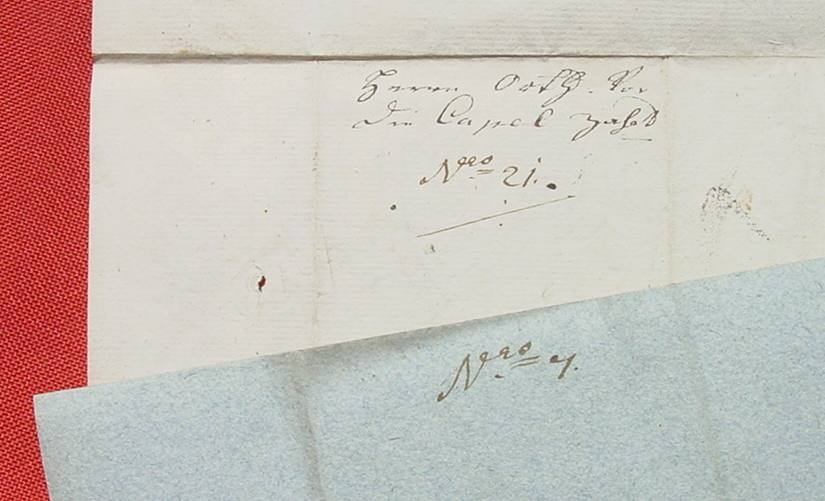 Herrn Orth. Vor
die Capel zahlt
Nro 21.
Nro 7.